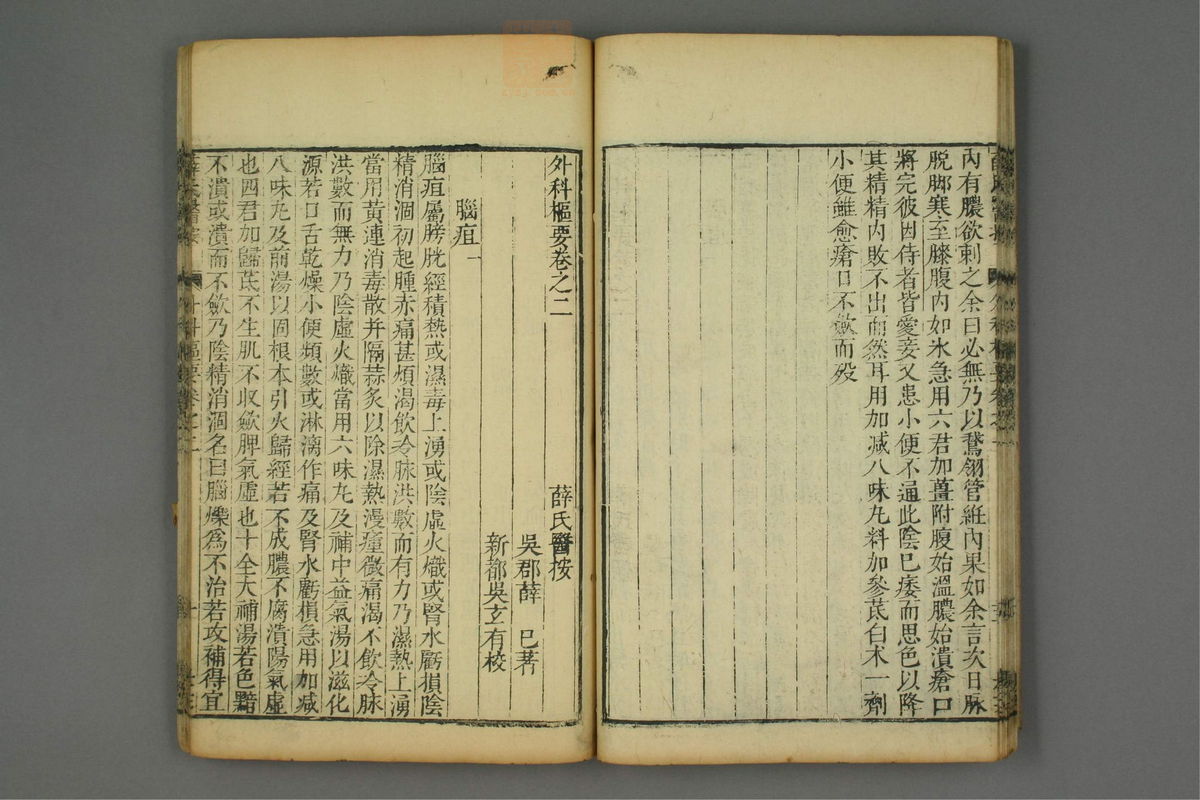 內有膿欲刺之余曰必無乃以鵞翎管紝內果如余言次日脉
脱脚寒至膝腹內如氷急用六君加薑附腹始溫膿始潰瘡口
將完彼因侍者皆愛妾又患小便不通此陰已痿而思色以降
其精精內敗不出而然耳用加减八味丸料加參芪白术一劑
小便雖愈瘡口不斂而殁
外科樞要卷之二
薛氏醫按
吳郡薛 已著
新都吳玄有校
腦疽 一
腦疽屬膀胱經積熱或濕毒上湧或陰虛火熾或腎水虧損陰
精消涸初起腫赤痛甚煩渴飲冷脉洪數而有力乃濕熱上湧
當用黃連消毒散并隔蒜炙以除濕熱漫瘇微痛渴不飲冷脉
洪數而無力乃陰虛火熾當用六味丸及補中益氣湯以滋化
源若口舌乾燥小便頻數或淋漓作痛及腎水虧損急用加减
八味丸及前湯以固根本引火歸經若不成膿不腐潰陽氣虛
也四君加歸芪不生肌不收斂脾氣虛也十全大補湯若色黯
不潰或潰而不斂乃陰精消涸名曰腦爍為不治若攻補得宜
薛氏醫按 外科樞要卷之二